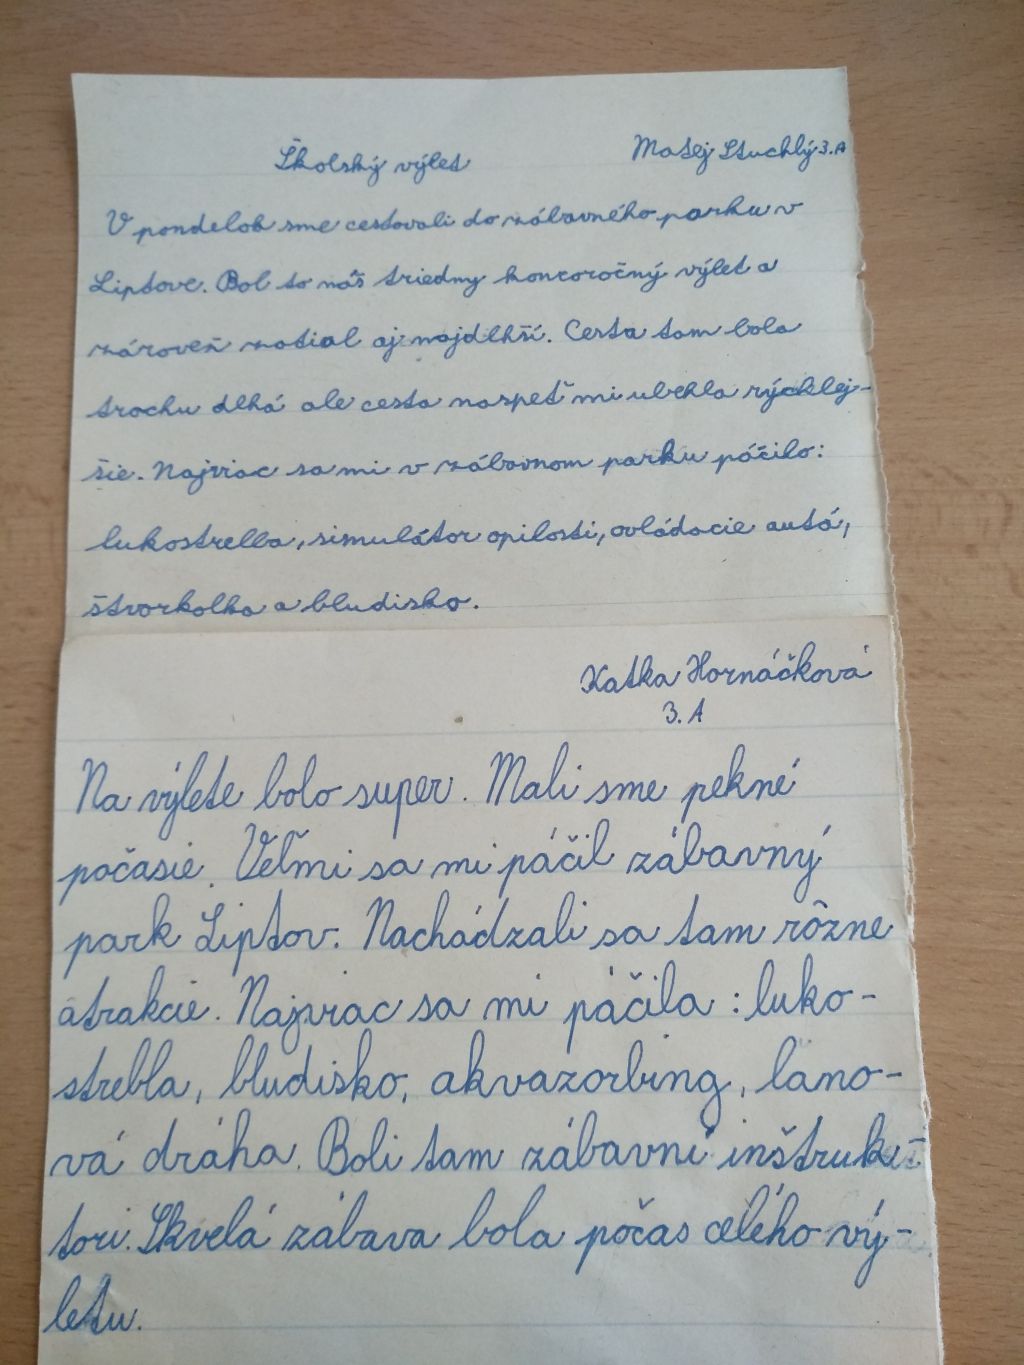 Školský výlet
Matej Stuchlý 3.A
V pondelok sme cestovali do zábavného parku v
Liptove. Bol to náš triedny koncoročný výlet a
zároveň zatial aj najdlhší. Cesta tam bola
trochu dlhá ale cesta naspeť mi ubehla rýchlej-
šie. Najviac sa mi v zábavnom parku páčilo:
lukostrelba, simulátor opilosti, ovládacie autá,
štvorkolka a bludisko.
Katka Hornáčková
3. A
Na výlete bolo super. Mali sme pekné
počasie. Veľmi sa mi páčil zábavný
park Liptov. Nachádzali sa tam rôzne
atrakcie. Najviac sa mi páčila : luko-
strebla, bludisko, akvazorbing, lano-
vá dráha. Boli tam zábavní inštruk-
tori. Skvelá zábava bola počas celého vý-
letu.